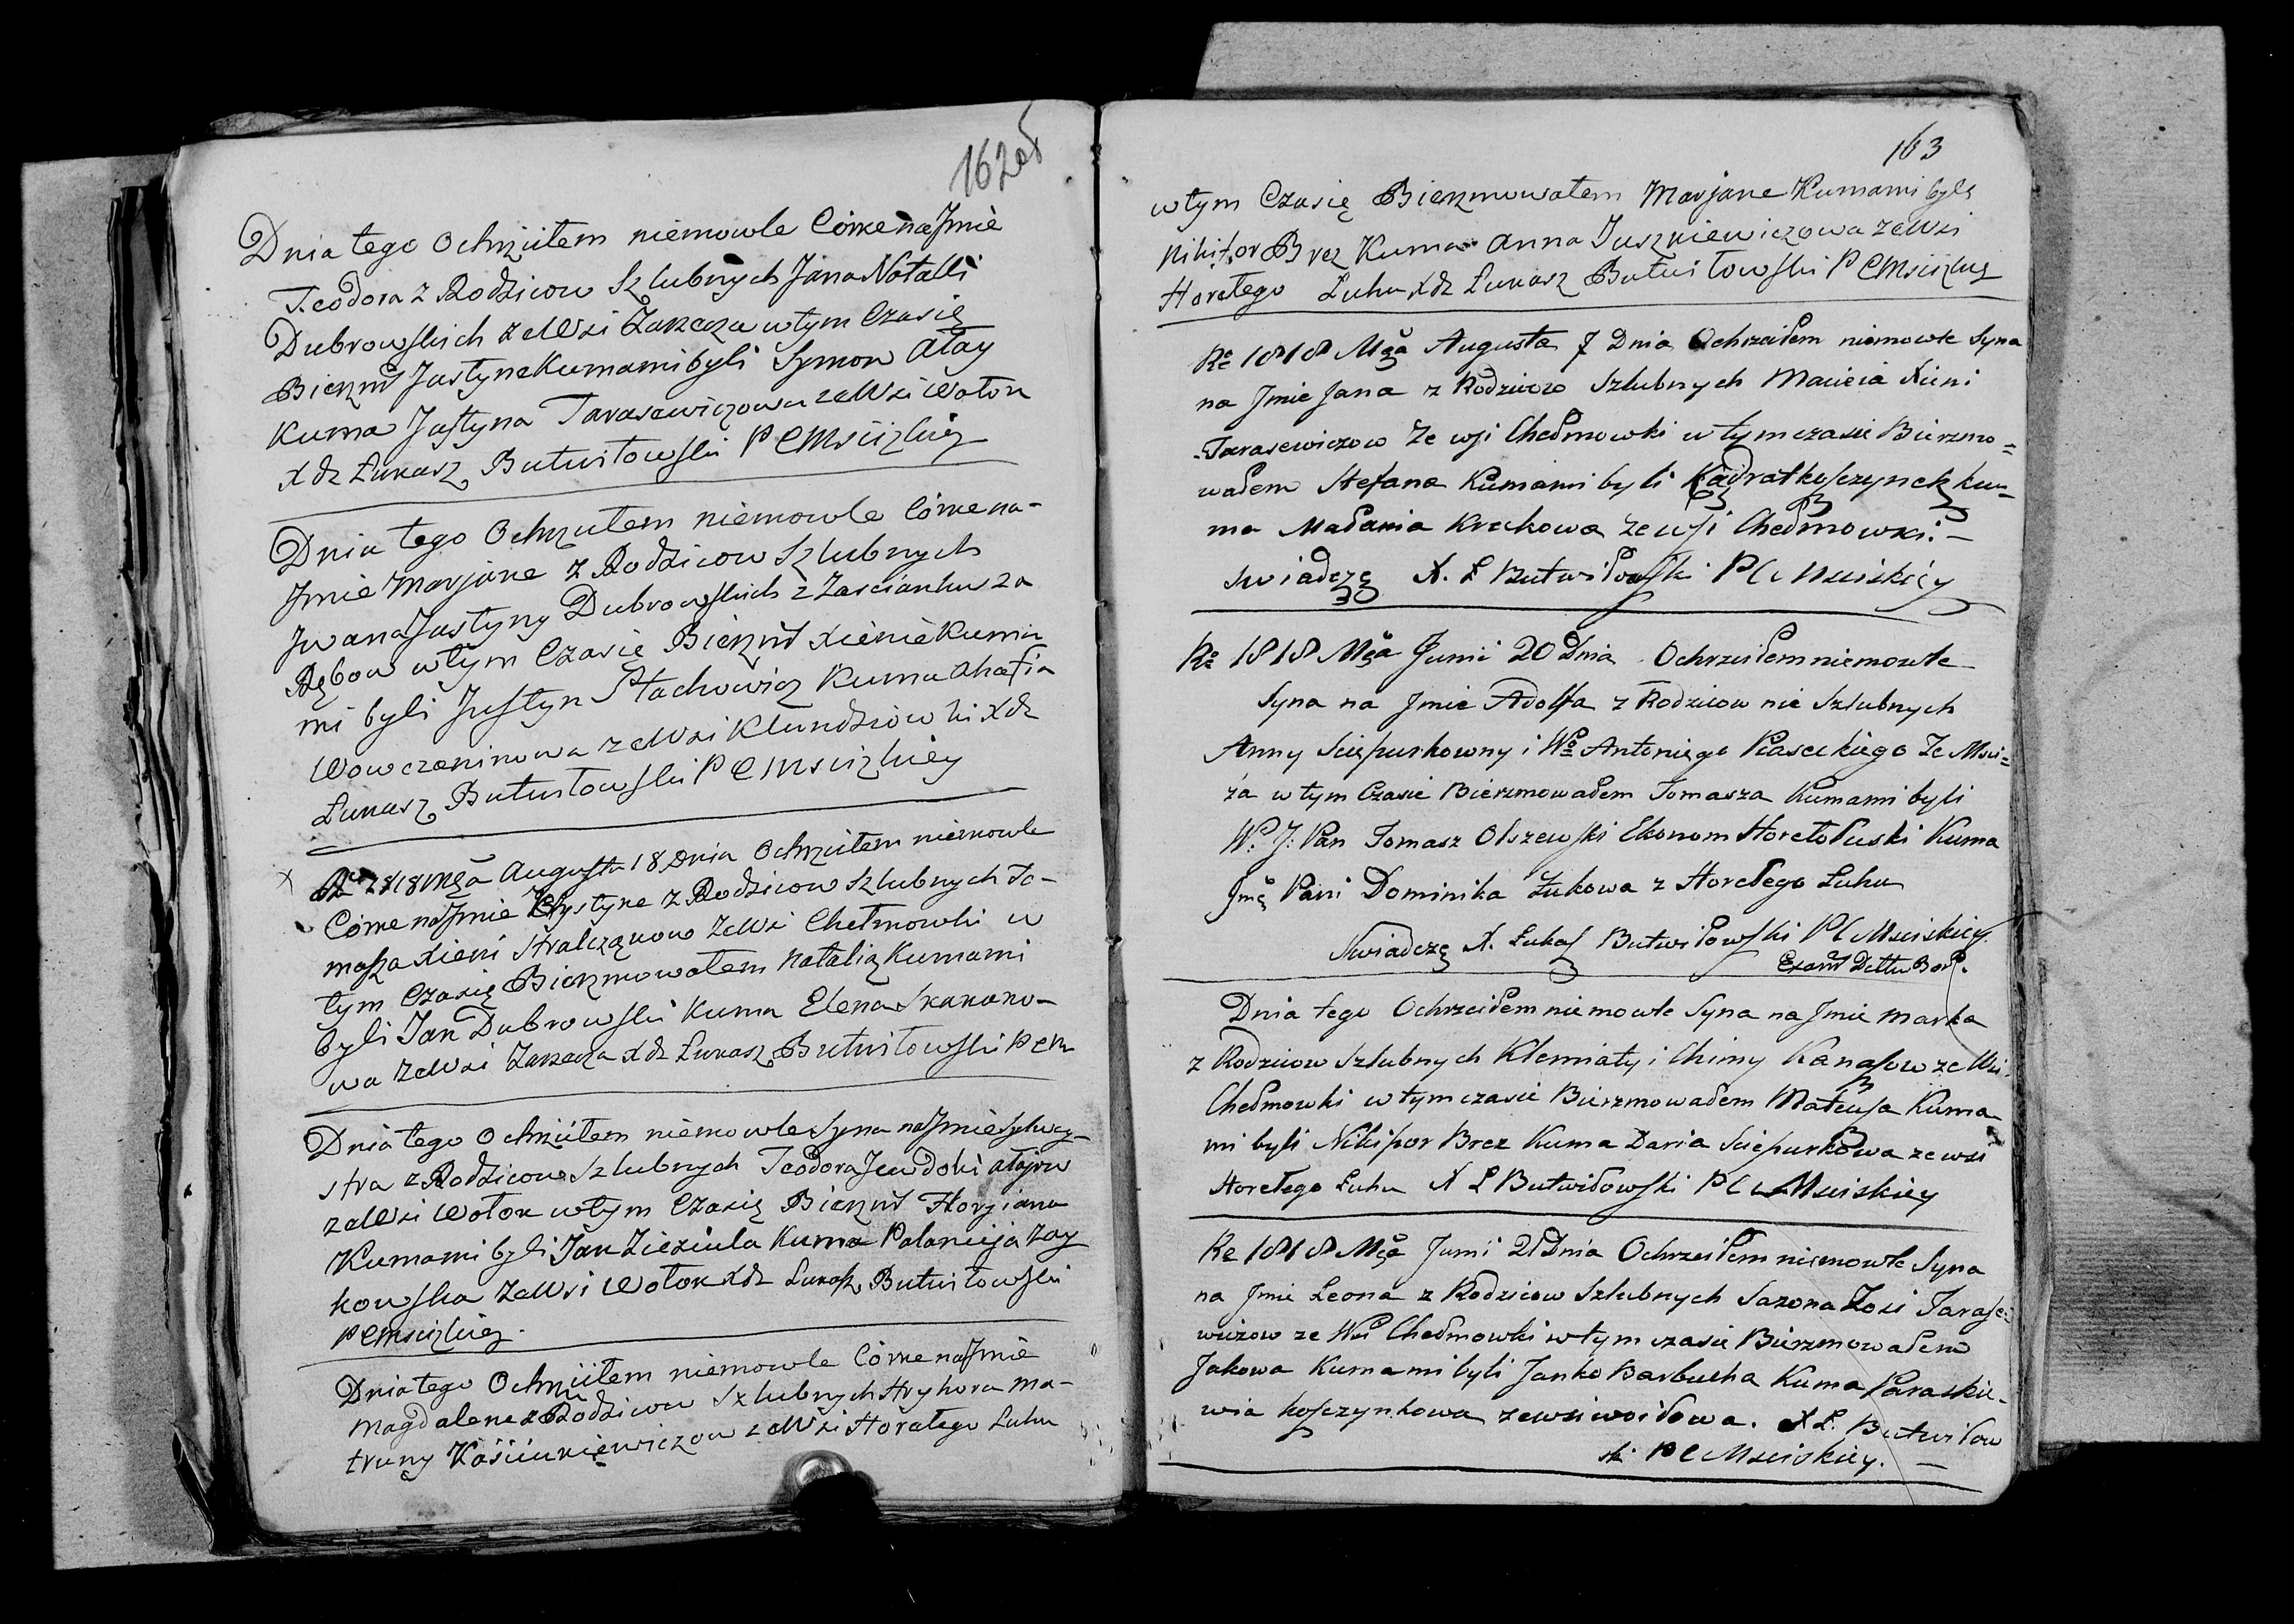 162 об
Dnia tego Ochrzciłem niemowle Córke na Jmie
Teodora z Rodziców Szlubnych Jana Natalli
Dubrowskich ze Wsi Zarzecza w tym Czasię
Bierzmł Justyne Kumami byli Symon Ałay
Kuma Justyna Tarasewiczowa ze Wsi Wołok
Xdz Łukasz Butwiłowski P C Mściżkiey
Dnia tego Ochrzciłem niemowle Córke na-
Jmie Marjane z Rodziców Szlubnych
Jwana Justyny Dubrowskich z Zascianku Za
Rębow w tym Czasię Bierzmł Xienie Kuma
mi byli Justyn Stachowicz Kuma Ahafia
Wowczeninowa ze Wsi Klundziówki Xdz
Łukasz Butwiłowski P C Msciżkiey
X Ro 1818 Msca Augusta 18 Dnia Ochrzciłem niemowle
Córke na Jmie Krystyne z Rodziców Szlubnych To-
masza Xieni Stralcząkow ze Wsi Chełmowki w
tym Czasię Bierzmowałem Natalią Kumami
byli Jan Dubrowski Kuma Elena Skakuno-
wa ze Wsi Zarzecza Xdz Łukasz Butwiłowski P C M
Dnia tego Ochrzciłem niemowle Syna na Jmie Sylwe-
stra z Rodziców Szlubnych Teodora Jewdoki Ałajow
ze Wsi Wołok w tym Czasię Bierzmł Floryiana
Kumami byli Jan Zieziula Kuma Połonieja Zay
kowska ze Wsi Wołok Xdz Łukasz Butwiłowski
P C Msciżkiey.
Dnia tego Ochrzciłem niemowle Córke na Jmie
Magdalene z Rodziców Szlubnych Hryhora Ma-
truny Kościukiewiczow ze Wsi Horełego Łuhu
163
w tym Czasię Bierzmowałem Marjane Kumami byli
Nikifor Brez Kuma Anna Juszkiewiczowa ze Wsi
Horełego Łuhu Xdz Łukasz Butwiłowski P C Msciżkiey
Ro 1818 Msca Augusta 7 Dnia Ochrzciłem niemowle Syna
na Jmie Jana z Rodzicow Szlubnych Macieia Xieni
Tarasewiczow ze wsi Chełmowki w tym czasie Bierzmo=
wałem Stefana Kumami byli Kądrat Koszczynek ku-
ma Małania Krukowa ze wsi Chełmowki. -
Swiadczę X. Ł Butwiłowski P C Msciskiey
Ro 1818 Msca Junii 20 Dnia Ochrzciłem niemowle
Syna na Jmie Adolfa z Rodzicow nie Szlubnych
Anny Sciepurkowny i Wo Antoniego Piaseckiego ze Msci=
ża w tym Czasie Bierzmowałem Tomasza Kumami byli
W. J: Pan Tomasz Olszewski Ekonom Horełołuski Kuma
Jmę Pani Dominika Żukowa z Horełego Łuhu
Swiadczę X. Łukasz Butwiłowski P C Msciskiey
Dnia tego Ochrzciłem niemowle Syna na Jmie Marka
z Rodzicow Szlubnych Klemiaty i Chimy Kanaszow ze Wsi
Chełmowki w tym czasie Bierzmowałem Mateusza Kuma
mi byli Nikipor Brez Kuma Daria Sciepurkowa ze wsi
Horełego Łuhu X Ł Butwiłowski P C Msciskiey
Ro 1818 Msca Junii 21 Dnia Ochrzciłem niemowle Syna
na Jmie Leona z Rodzicow Szlubnych Sazona Zosi Tarase-
wiczow ze Wsi Chełmowki w tym czasie Bierzmowałem
Jakowa Kumami byli Janko Barbucha Kuma Paraskie-
wia Koszczynkowa ze wsi woiłowa. X Ł. Butwiłow
ski P C Msciskiey. -